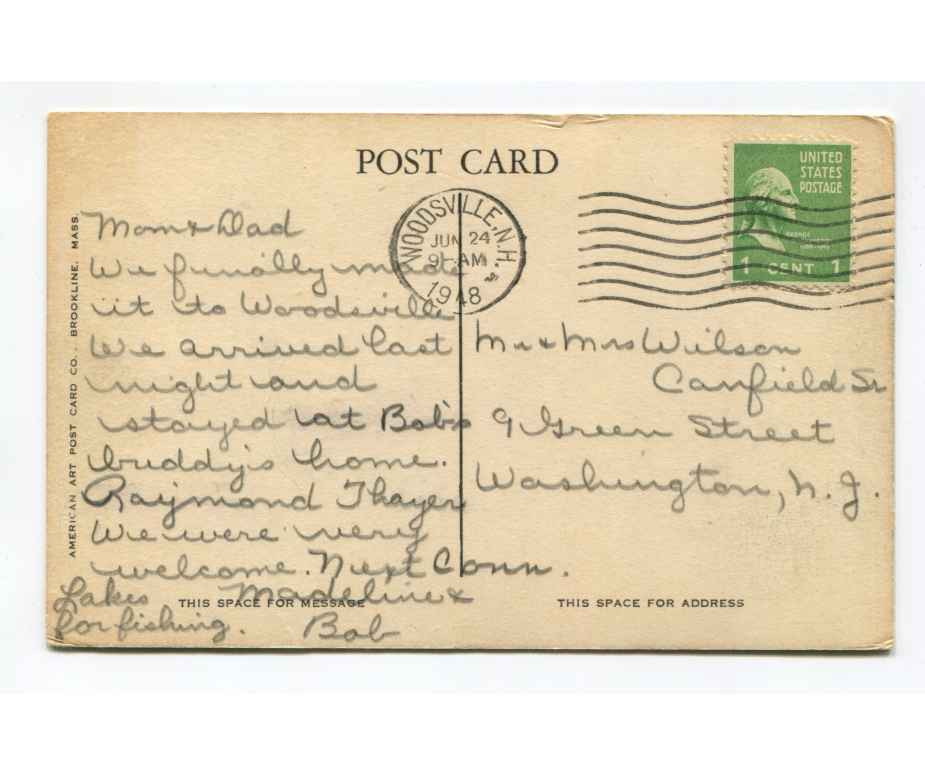 POST CARD
UNITED
STATES
POSTAGE
1 CENT 1
WOODSVILLE, N.H.
JUN 24
9 AM
1948
AMERICAN ART POST CARD CO., BROOKLINE, MASS.
Mom & Dad
We finally made
it to Woodsville
We arrived last
night and
stayed at Bob's
buddy's home.
Raymond Thayer
We were very
welcome. Next Conn.
Lakes
for fishing.
Madeline &
Bob
Mr & Mrs Wilson
Canfield Sr
9 Green Street
Washington, N. J.
THIS SPACE FOR MESSAGE
THIS SPACE FOR ADDRESS